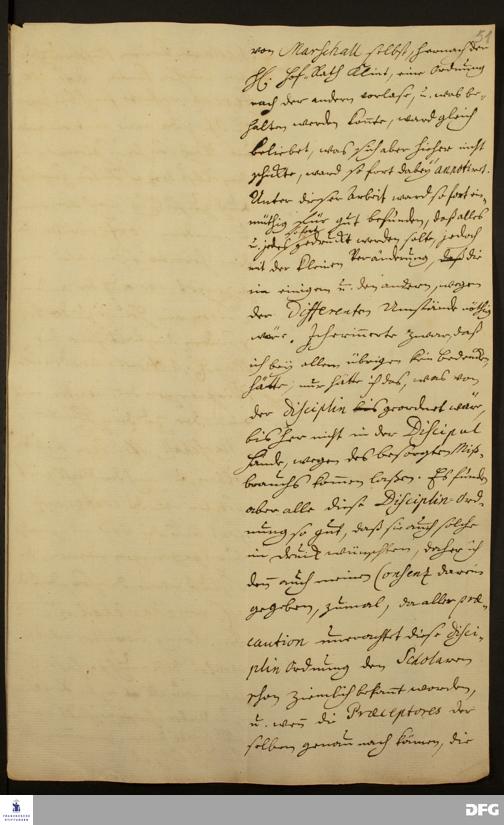 51
von Marschall selbst, hernach der
H. Hof-Rath Klint, eine Ordnung
nach der andern vorlase, u. was be-
halten werden konte, ward gleich
beliebet, was sich aber hieher nicht
schickte, ward so fort dabey annotiret.
Unter dieser Arbeit ward so fort ein-
müthig für gut befunden, daß alles
u. jedes so fort gedruckt werden solte, jedoch
mit der kleinen Veränderung, die
in einigem u. den andern, wegen
der differenten Umstände nöthig
wäre. Ich erinnerte zwar, daß
ich bey allem übrigen kein bedencken
hätte, nur hätte ich das, was von
der disciplin geordnet wäre,
bis her nicht in der Discipul
Hände, wegen des besorgten Miß-
brauchs kommen laßen. Es funden
aber alle diese Disciplin-Ord-
nung so gut, daß sie auch solche
im Druck wünschten, daher ich
denn auch meinen Consens darein
gegeben, zumal, da aller præ-
caution unerachtet diese Disci-
plin Ordnung den Scholaren
schon ziemlich bekannt worden,
u. wenn die Præceptores der
selben genau nach kämen, die
FRANCKESCHE STIFTUNGEN
DFG